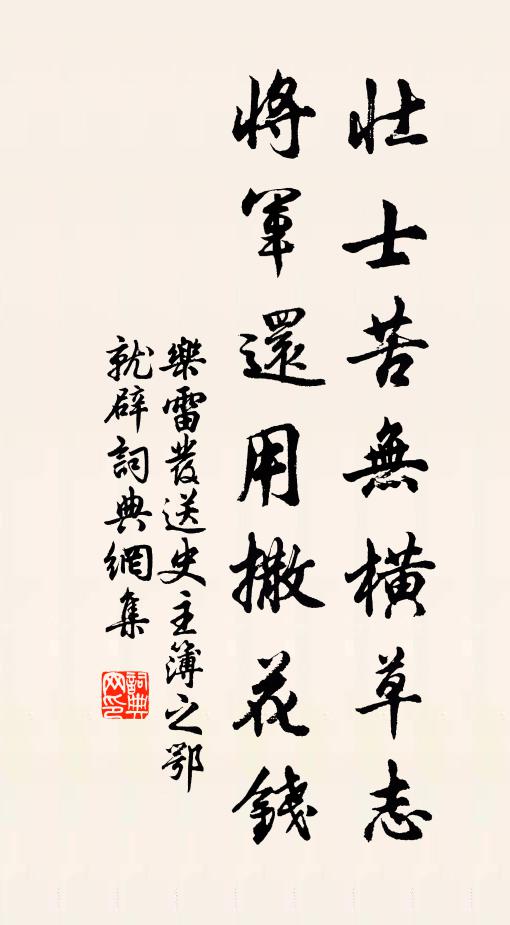 壯士苦無橫草志
將軍還用撒花錢
樂雷發送史主簿之鄂
就辟詞典網集
詞典
网印